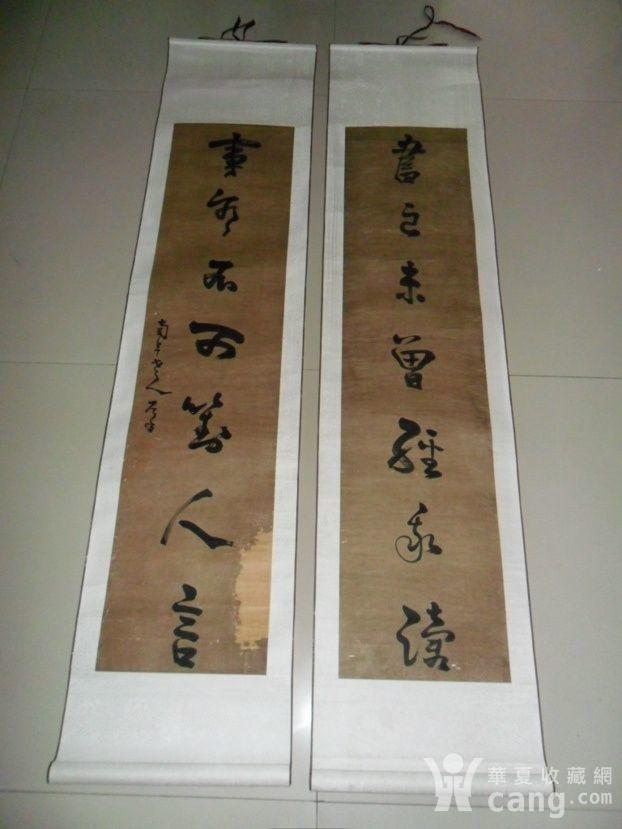 書有未曾經我讀
事無不可對人言
南阜老人
華夏收藏網
cang.com